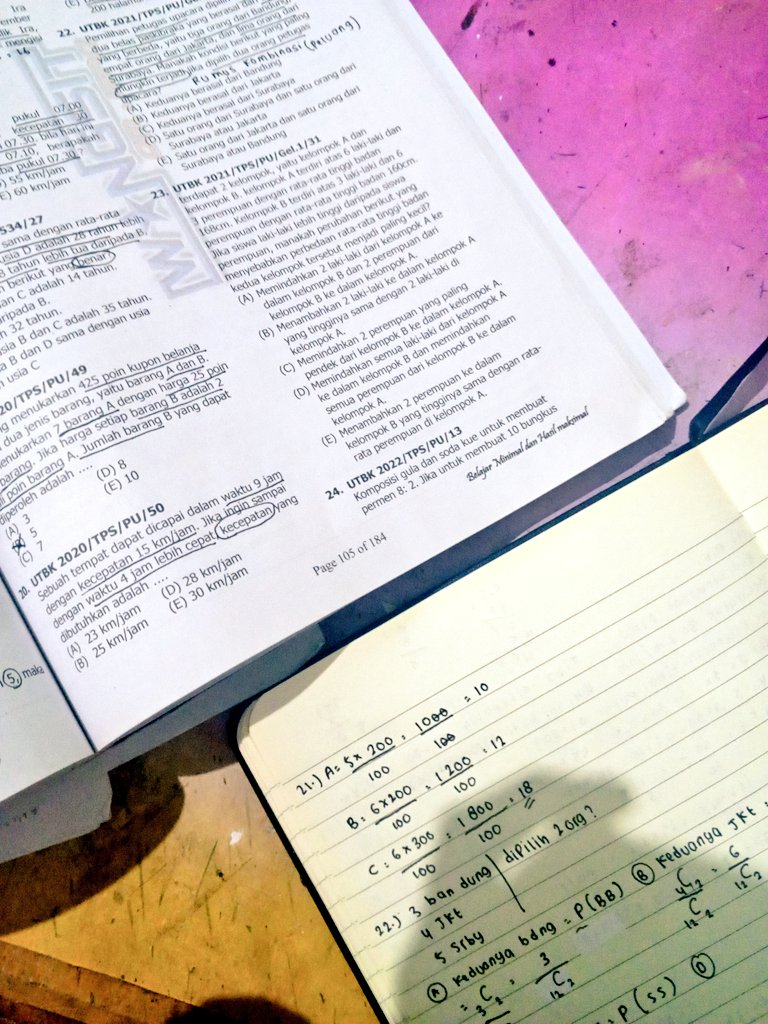 22. UTBK 2021/TPS/PU/Ge
Pemilihan petugas upacara
yang berbeda, yaitu tiga orang dari
empat orang dari Jakarta, dan lima orang dari
Surabaya. Manakah kondisi berikut yang paling
mungkin terjadi jika dipilih dua orang petugas
Rumus Kombinasi (Peluang)
(A) Keduanya berasal dari Bandung
(B) Keduanya berasal dari Jakarta
(C) Keduanya berasal dari Surabaya
(D) Satu orang dari Surabaya dan satu orang dari
Surabaya atau Jakarta
(E) Satu orang dari Jakarta dan satu orang dari
Surabaya atau Bandung
23. UTBK 2021/TPS/PU/Gel.1/31
Terdapat 2 kelompok, yaitu kelompok A dan
kelompok B. Kelompok A terdiri atas 6 laki-laki dan
3 perempuan dengan rata-rata tinggi badan
168cm. Kelompok B terdiri atas 3 laki-laki dan 6
perempuan dengan rata-rata tinggi badan 160cm.
Jika siswa laki-laki lebih tinggi daripada siswa
perempuan, manakah perubahan berikut yang
menyebabkan perbedaan rata-rata tinggi badan
kedua kelompok tersebut menjadi paling kecil?
(A) Memindahkan 2 laki-laki dari kelompok A ke
dalam kelompok B dan 2 perempuan dari
kelompok B ke dalam kelompok A.
(B) Menambahkan 2 laki-laki ke dalam kelompok A
yang tingginya sama dengan 2 laki-laki di
kelompok A.
(C) Memindahkan 2 perempuan yang paling
pendek dari kelompok B ke dalam kelompok A.
(D) Memindahkan semua laki-laki dari kelompok A
ke dalam kelompok B dan memindahkan
semua perempuan dari kelompok B ke dalam
kelompok A.
(E) Menambahkan 2 perempuan ke dalam
kelompok B yang tingginya sama dengan rata-
rata perempuan di kelompok A.
24. UTBK 2022/TPS/PU/13
Komposisi gula dan soda kue untuk membuat
permen 8: 2. Jika untuk membuat 10 bungkus
Belajar Minimal dan Hasil maksimal
Page 105 of 184
pukul 07.00
kecepatan 30
07.30, bila hari ini
07.10, berapakah
ba pukul 07.30?
D) 55 km/jam
E) 60 km/jam
S34/27
sama dengan rata-rata
usia D adalah 26 tahun lebih
8 tahun lebih tua daripada B.
n berikut yang benar
an C adalah 14 tahun.
aripada B.
h 32 tahun.
sia B dan C adalah 35 tahun.
a B dan D sama dengan usia
n usia C
20/TPS/PU/49
ng menukarkan 425 poin kupon belanja
dua jenis barang, yaitu barang A dan B.
enukarkan 7 barang A dengan harga 25 poin
barang. Jika harga setiap barang B adalah 2
li poin barang A. Jumlah barang B yang dapat
diperoleh adalah ....
(A) 3
5
(C) 7
(D) 8
(E) 10
20. UTBK 2020/TPS/PU/50
Sebuah tempat dapat dicapai dalam waktu 9 jam
dengan kecepatan 15 km/jam. Jika ingin sampai
dengan waktu 4 jam lebih cepat, kecepatan yang
dibutuhkan adalah ....
(A) 23 km/jam
(B) 25 km/jam
(D) 28 km/jam
(E) 30 km/jam
5, maka
21.) A = 5 x 200 / 100 = 1000 / 100 = 10
B = 6 x 200 / 100 = 1 200 / 100 = 12
C = 6 x 300 / 100 = 1 800 / 100 = 18
22.) 3 bandung
4 JKt
5 Srby
dipilih 2 org?
(A) Keduanya bdng = P(BB)
= 3C2 / 12C2 = 3 / 12C2
(B) Keduanya JKt =
4C2 / 12C2 = 6 / 12C2
= P(SS)
(D)